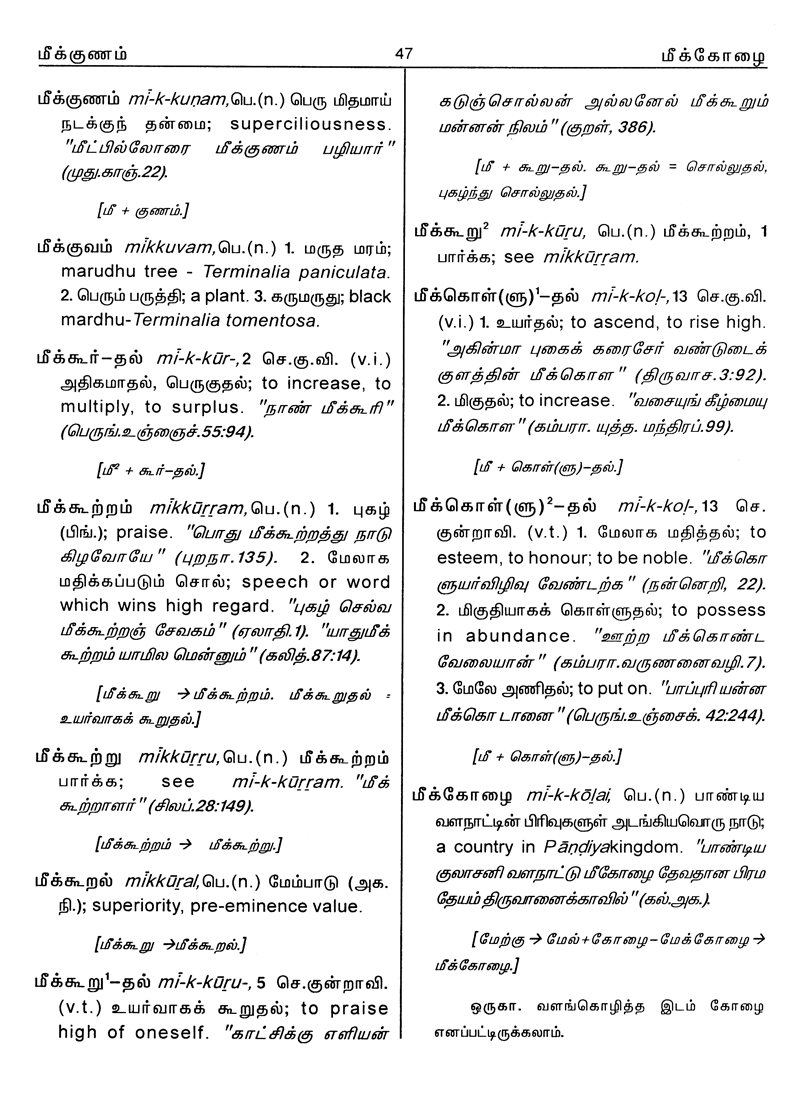 மீக்குணம்
47
மீக்கோழை
மீக்குணம் mī-k-kuṇam, பெ.(n.) பெரு மிதமாய்
நடக்குந் தன்மை; superciliousness.
"மீட்பில்லோரை மீக்குணம் பழியார்"
(முது.காஞ்.22).
[மீ + குணம்.]
மீக்குவம் mīkkuvam, பெ.(n.) 1. மருத மரம்;
marudhu tree - Terminalia paniculata.
2. பெரும் பருத்தி; a plant. 3. கருமருது; black
mardhu-Terminalia tomentosa.
மீக்கூர்-தல் mī-k-kūr-, 2 செ.கு.வி. (v.i.)
அதிகமாதல், பெருகுதல்; to increase, to
multiply, to surplus. "நாண் மீக்கூரி"
(பெருங்.உஞ்ஞைச்.55:94).
[மீ² + கூர்-தல்.]
மீக்கூற்றம் mīkkūṟṟam, பெ.(n.) 1. புகழ்
(பிங்.); praise. "பொது மீக்கூற்றத்து நாடு
கிழவோயே" (புறநா.135). 2. மேலாக
மதிக்கப்படும் சொல்; speech or word
which wins high regard. "புகழ் செல்வ
மீக்கூற்றஞ் சேவகம்" (ஏலாதி.1). "யாதுமீக்
கூற்றம் யாமில மென்னும்" (கலித்.87:14).
[மீக்கூறு → மீக்கூற்றம். மீக்கூறுதல் =
உயர்வாகக் கூறுதல்.]
மீக்கூற்று mīkkūṟṟu, பெ.(n.) மீக்கூற்றம்
பார்க்க; see mī-k-kūṟṟam. "மீக்
கூற்றாளர்" (சிலப்.28:149).
[மீக்கூற்றம் → மீக்கூற்று.]
மீக்கூறல் mīkkūṟal, பெ.(n.) மேம்பாடு (அக.
நி.); superiority, pre-eminence value.
[மீக்கூறு → மீக்கூறல்.]
மீக்கூறு¹-தல் mī-k-kūṟu-, 5 செ.குன்றாவி.
(v.t.) உயர்வாகக் கூறுதல்; to praise
high of oneself. "காட்சிக்கு எளியன்
கடுஞ்சொல்லன் அல்லனேல் மீக்கூறும்
மன்னன் நிலம்" (குறள், 386).
[மீ + கூறு-தல். கூறு-தல் = சொல்லுதல்,
புகழ்ந்து சொல்லுதல்.]
மீக்கூறு² mī-k-kūṟu, பெ.(n.) மீக்கூற்றம், 1
பார்க்க; see mīkkūṟṟam.
மீக்கொள்(ளு)¹-தல் mī-k-koḷ-, 13 செ.கு.வி.
(v.i.) 1. உயர்தல்; to ascend, to rise high.
"அகின்மா புகைக் கரைசேர் வண்டுடைக்
குளத்தின் மீக்கொள" (திருவாச.3:92).
2. மிகுதல்; to increase. "வசையுங் கீழ்மையு
மீக்கொள" (கம்பரா. யுத்த. மந்திரப்.99).
[மீ + கொள்(ளு)-தல்.]
மீக்கொள்(ளு)²-தல் mī-k-koḷ-, 13 செ.
குன்றாவி. (v.t.) 1. மேலாக மதித்தல்; to
esteem, to honour; to be noble. "மீக்கொ
ளுயர்விழிவு வேண்டற்க" (நன்னெறி, 22).
2. மிகுதியாகக் கொள்ளுதல்; to possess
in abundance. "ஊற்ற மீக்கொண்ட
வேலையான்" (கம்பரா.வருணனைவழி.7).
3. மேலே அணிதல்; to put on. "பாப்புரி யன்ன
மீக்கொ டானை" (பெருங்.உஞ்சைக். 42:244).
[மீ + கொள்(ளு)-தல்.]
மீக்கோழை mī-k-kōḻai, பெ.(n.) பாண்டிய
வளநாட்டின் பிரிவுகளுள் அடங்கியவொரு நாடு;
a country in Pāṇḍiyakingdom. "பாண்டிய
குலாசனி வளநாட்டு மீகோழை தேவதான பிரம
தேயம் திருவானைக்காவில்" (கல்.அக.).
[மேற்கு → மேல்+கோழை-மேக்கோழை →
மீக்கோழை.]
ஒருகா. வளங்கொழித்த இடம் கோழை
எனப்பட்டிருக்கலாம்.